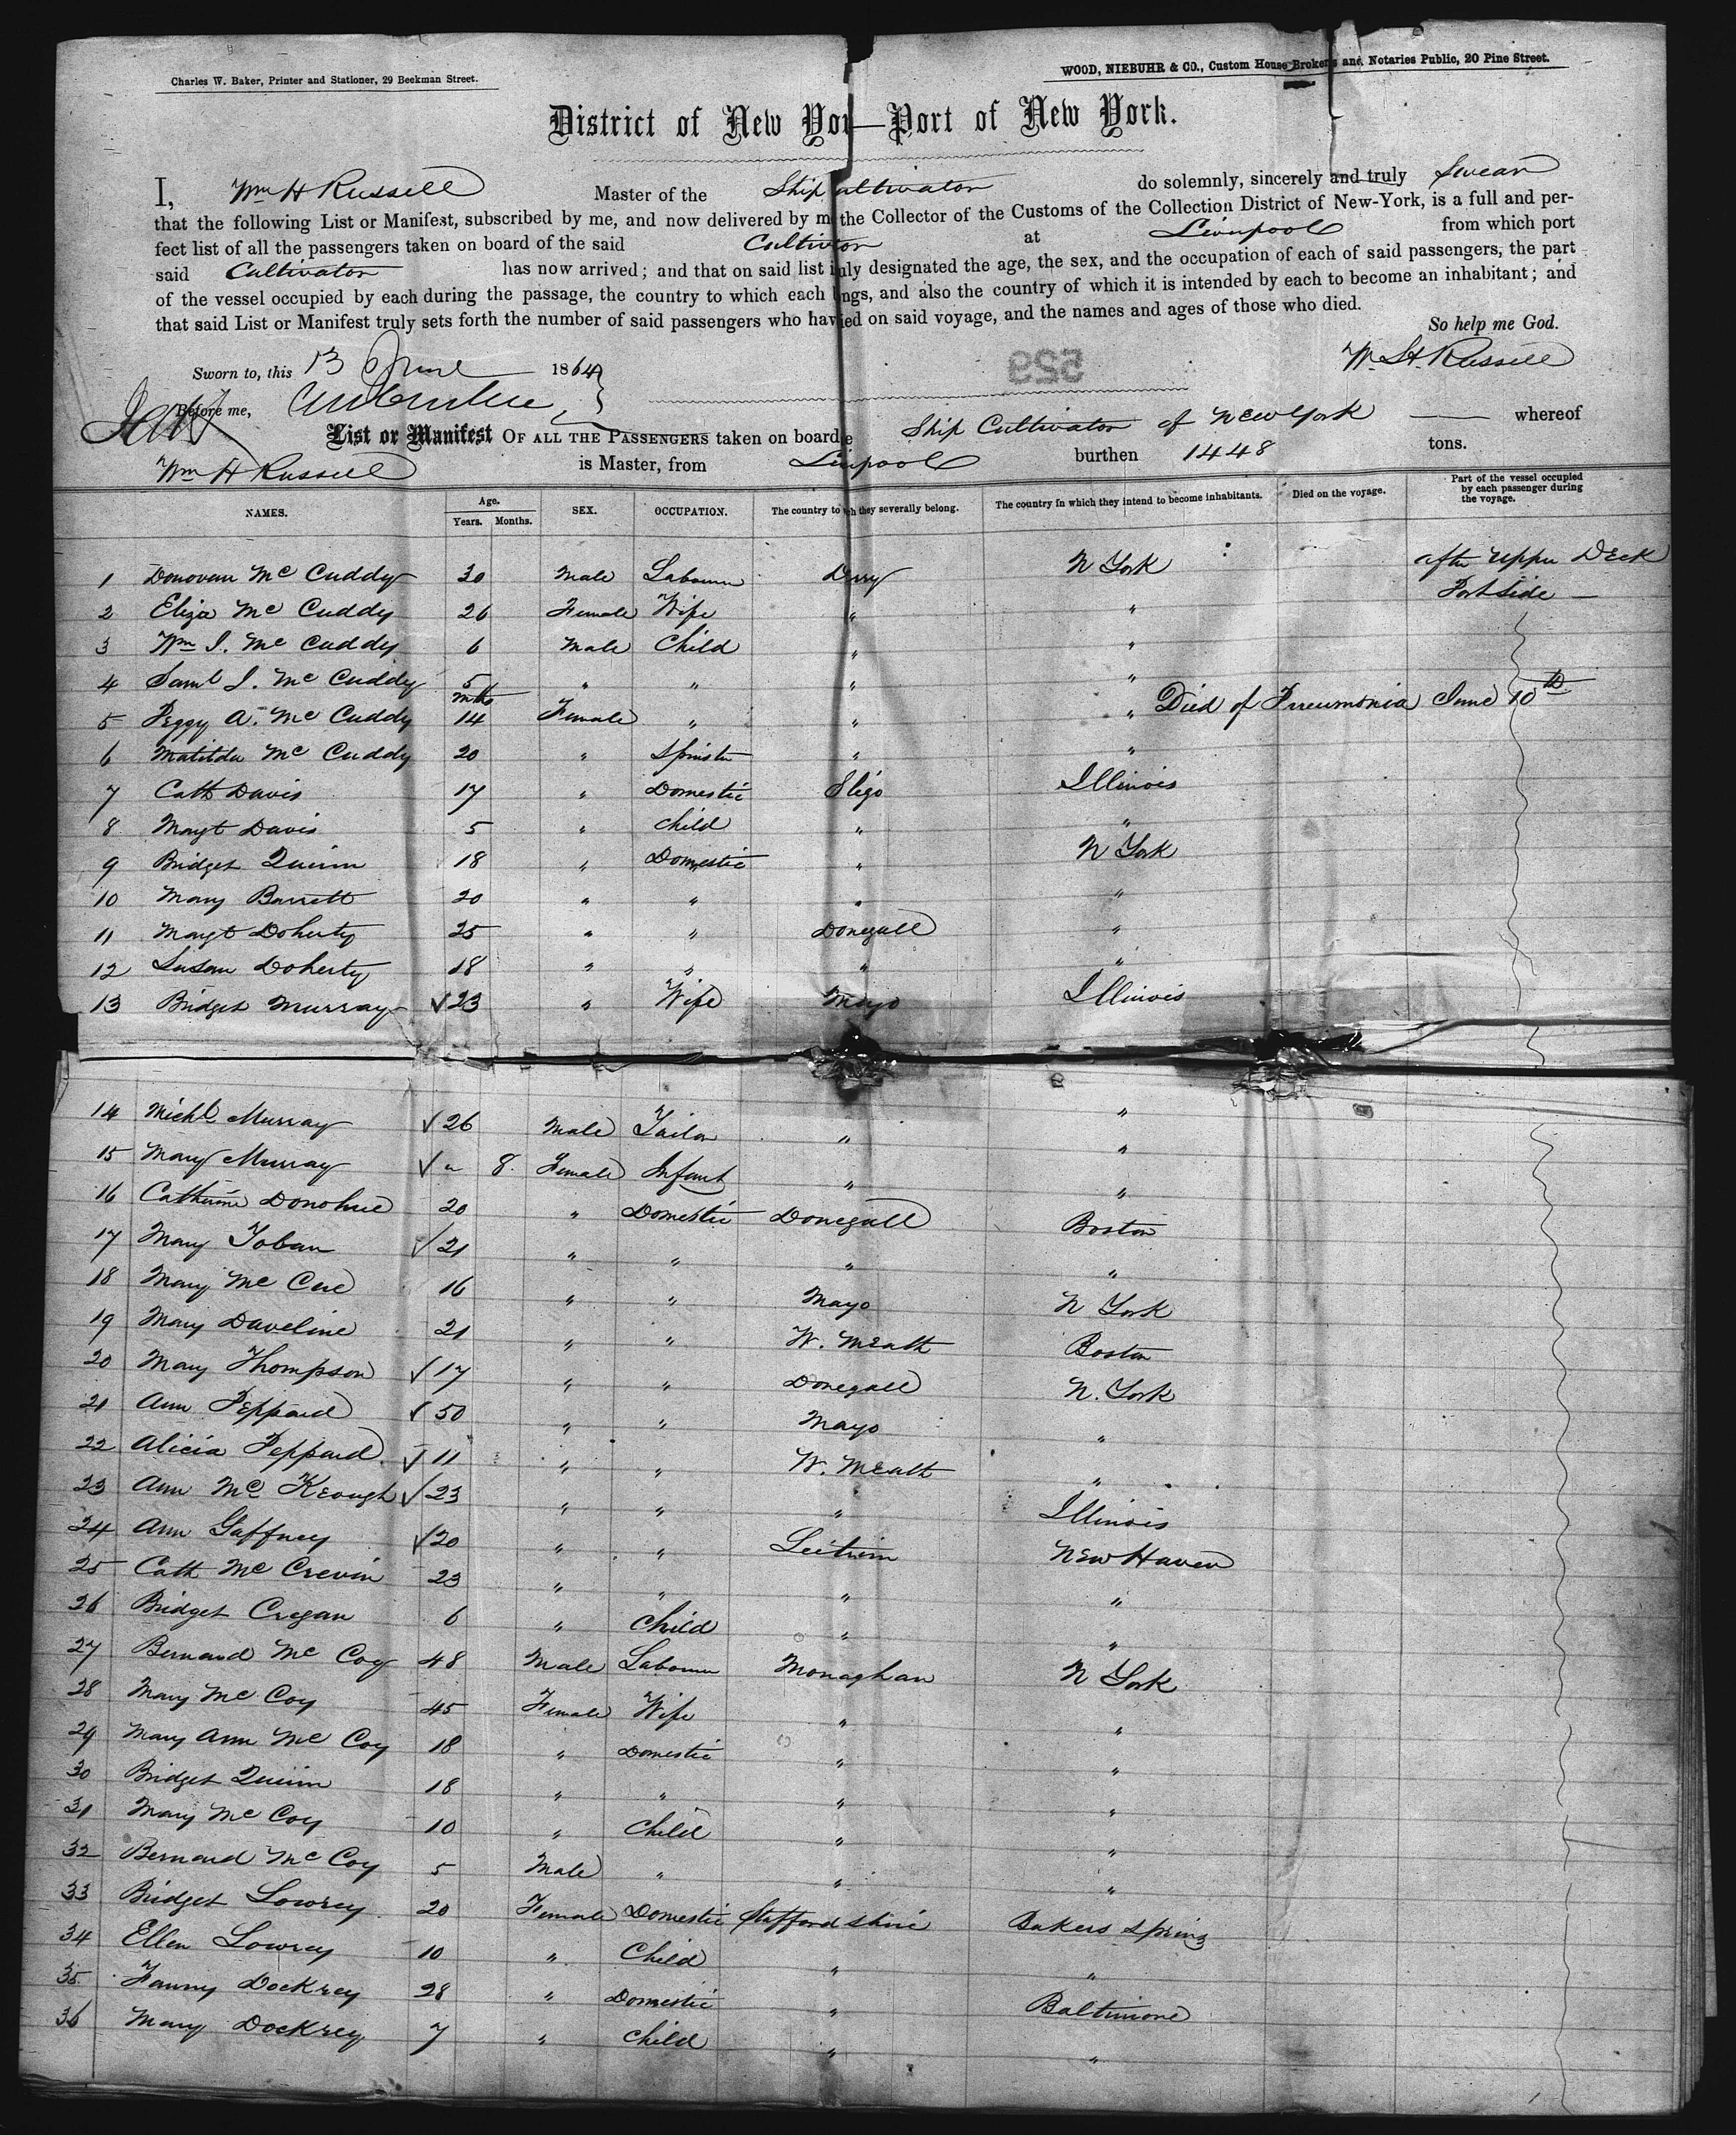 Charles W. Baker, Printer and Stationer, 29 Beekman Street.
WOOD, NIEBUHR & CO., Custom House Brokers and Notaries Public, 20 Pine Street.
District of New Yor—Port of New York.
I, Wm H Russell Master of the Ship Cultivator do solemnly, sincerely and truly Swear
that the following List or Manifest, subscribed by me, and now delivered by me the Collector of the Customs of the Collection District of New-York, is a full and per-
fect list of all the passengers taken on board of the said Cultivator at Liverpool from which port
said Cultivator has now arrived; and that on said list is duly designated the age, the sex, and the occupation of each of said passengers, the part
of the vessel occupied by each during the passage, the country to which each longs, and also the country of which it is intended by each to become an inhabitant; and
that said List or Manifest truly sets forth the number of said passengers who have died on said voyage, and the names and ages of those who died.
So help me God.
Sworn to, this 13 June 1864
Wm. H. Russell
529
Before me,
List or Manifest OF ALL THE PASSENGERS taken on board the Ship Cultivator of New York — whereof
Wm H Russell is Master, from Liverpool burthen 1448 tons.
NAMES. Age. Years. Months. SEX. OCCUPATION. The country to which they severally belong. The country in which they intend to become inhabitants. Died on the voyage. Part of the vessel occupied by each passenger during the voyage.
1 Donovan Mc Cuddy 30 Male Labourer Derry N York after upper Deck
2 Eliza Mc Cuddy 26 Female Wife " " Port side —
3 Wm J. Mc Cuddy 6 Male Child " "
4 Saml J. Mc Cuddy 5 " " " "
5 Peggy A. Mc Cuddy mths 14 Female " " " Died of Pneumonia June 10th
6 Matilda Mc Cuddy 20 " Spinster " "
7 Cath Davis 17 " Domestic Sligo Illinois
8 Margt Davis 5 " Child " "
9 Bridget Quinn 18 " Domestic " N York
10 Mary Barrett 20 " " " "
11 Margt Doherty 25 " " Donegall "
12 Susan Doherty 18 " " " "
13 Bridget Murray ✓ 23 " Wife Mayo Illinois
14 Michl Murray ✓ 26 Male Tailor " "
15 Mary Murray ✓ " 8. Female Infant " "
16 Catherine Donohue 20 " Domestic Donegall "
17 Mary Toban ✓ 21 " " " Boston
18 Mary Mc Cue 16 " " Mayo "
19 Mary Daveline 21 " " W. Meath N York
20 Mary Thompson ✓ 17 " " Donegall Boston
21 Ann Peppard ✓ 50 " " Mayo N. York
22 Alicia Peppard ✓ 11 " " W. Meath "
23 Ann Mc Keough ✓ 23 " " " "
24 Ann Gaffney ✓ 20 " " Leitrim Illinois
25 Cath Mc Crevin 23 " " " New Haven
26 Bridget Cregan 6 " Child " "
27 Bernard Mc Coy 48 Male Labourer Monaghan "
28 Mary Mc Coy 45 Female Wife " N York
29 Mary Ann Mc Coy 18 " Domestic " "
30 Bridget Quinn 18 " " " "
31 Mary Mc Coy 10 " Child " "
32 Bernard Mc Coy 5 Male " " "
33 Bridget Lowrey 20 Female Domestic Staffordshire "
34 Ellen Lowrey 10 " Child " Bakers Spring
35 Fanny Dockrey 28 " Domestic " "
36 Mary Dockrey 7 " Child " Baltimore
"